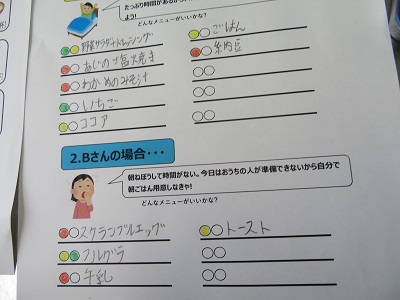 たっぷり時間があるから
よう！
どんなメニューがいいかな？
野菜サラダ+ドレッシング
あじのさ塩焼き
わかめのみそ汁
いちご
ココア
ごはん
納豆
2.Bさんの場合・・・
朝ねぼうして時間がない。今日はおうちの人が準備できないから自分で
朝ごはん用意しなきゃ！
どんなメニューがいいかな？
スクランブルエッグ
フルグラ
牛乳
トースト